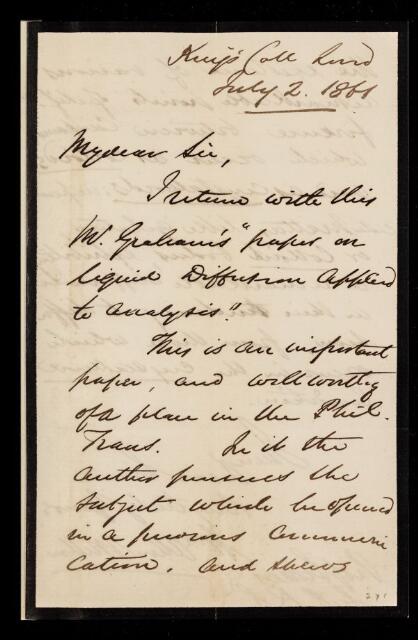 King's Coll Lond
July 2. 1861
My dear Sir,
I return with this
Mr. Graham's "paper on
liquid Diffusion Applied
to Analysis."
This is an important
paper, and well worthy
of a place in the Phil.
Trans. In it the
author pursues the
subject which he opened
in a previous communi
cation, and shews